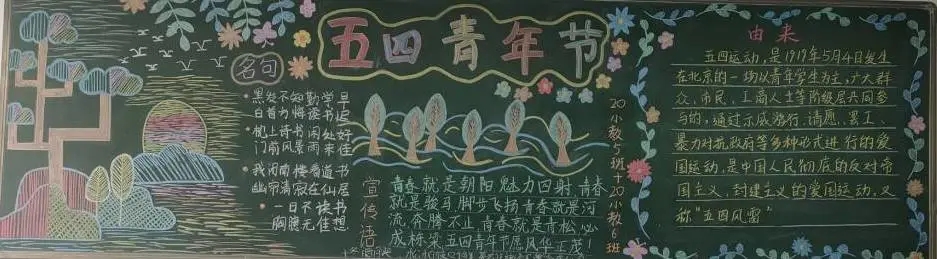 五四青年节
名句
黑发不知勤学早
白首方悔读书迟
枕上诗书闲处好
门前风景雨来佳
我闭南楼看道书
幽帘清寂在仙居
一日不读书
胸臆无佳想
宣传语
青春就是朝阳魅力四射青春
就是骏马脚步飞扬青春就是河
流奔腾不止青春就是青松必
成栋梁五四青年节展风华正茂!
20小教5班+20小教6班
由来
五四运动,是1919年5月4日发生
在北京的一场以青年学生为主,广大群
众、市民、工商人士等阶级层共同参
与的,通过示威游行、请愿、罢工、
暴力对抗政府等多种形式进行的爱
国运动,是中国人民彻底的反对帝
国主义、封建主义的爱国运动,又
称"五四风雷"